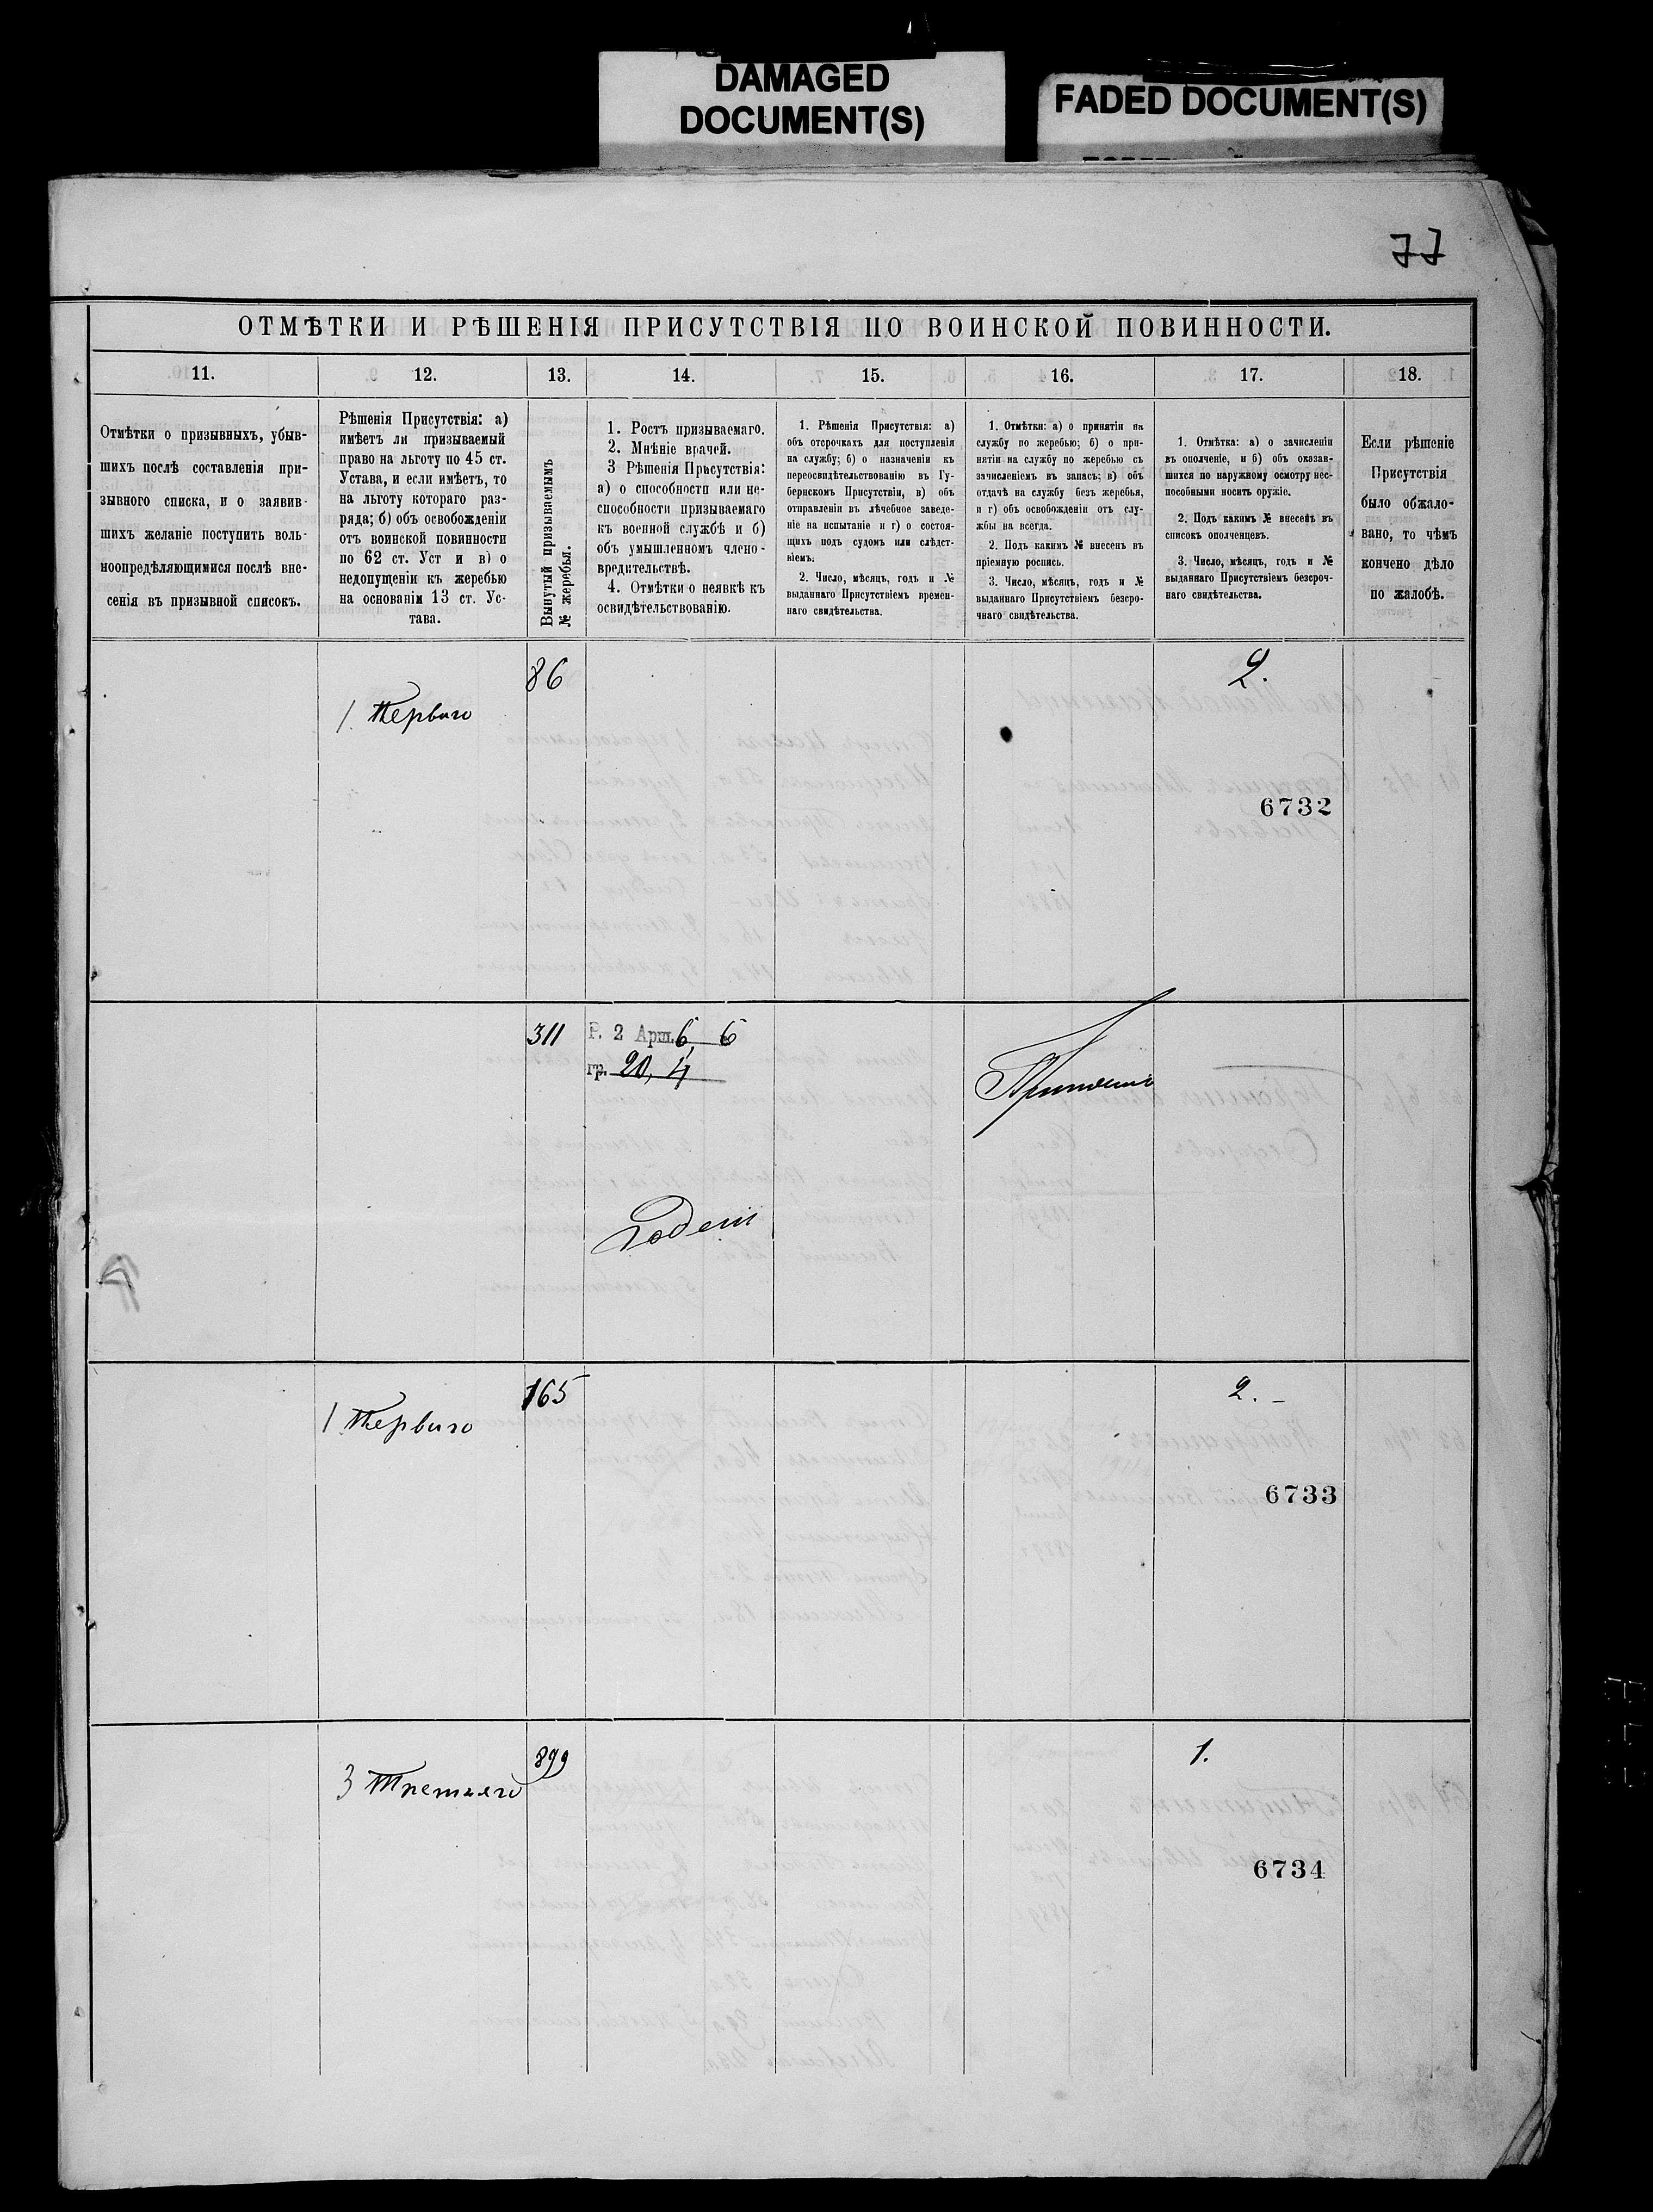 DAMAGED
DOCUMENT(S)
FADED DOCUMENT(S)
77
ОТМѢТКИ И РѢШЕНІЯ ПРИСУТСТВІЯ ПО ВОИНСКОЙ ПОВИННОСТИ.
11.
12.
13.
14.
15.
16.
17.
18.
Отмѣтки о призывныхъ, убыв-
шихъ послѣ составленія при-
зывного списка, и о заявив-
шихъ желаніе поступить воль-
ноопредѣляющимися послѣ вне-
сенія въ призывной списокъ.
Рѣшенія Присутствія: а)
имѣетъ ли призываемый
право на льготу по 45 ст.
Устава, и если имѣетъ, то
на льготу котораго раз-
ряда; б) объ освобожденіи
отъ воинской повинности
по 62 ст. Уст и в) о
недопущеніи къ жеребью
на основаніи 13 ст. Ус-
тава.
Вынутый призываемымъ
№ жеребья.
1. Ростъ призываемаго.
2. Мнѣніе врачей.
3 Рѣшенія Присутствія:
а) о способности или не-
способности призываемаго
къ военной службѣ и б)
объ умышленномъ члено-
вредительствѣ.
4. Отмѣтки о неявкѣ къ
освидѣтельствованію.
1. Рѣшенія Присутствія: а)
объ отсрочкахъ для поступленія
на службу; б) о назначеніи къ
переосвидѣтельствованію въ Гу-
бернскомъ Присутствіи, в) объ
отправленіи въ лѣчебное заведе-
ніе на испытаніе и г) о состоя-
щихъ подъ судомъ или слѣдст-
віемъ.
2. Число, мѣсяцъ, годъ и №
выданнаго Присутствіемъ времен-
наго свидѣтельства.
1. Отмѣтки: а) о принятіи на
службу по жеребью; б) о при-
нятіи на службу по жеребью съ
зачисленіемъ въ запасъ; в) объ
отдачѣ на службу безъ жеребья,
и г) объ освобожденіи отъ слу-
жбы на всегда.
2. Подъ какимъ № внесенъ въ
пріемную роспись.
3. Число, мѣсяцъ, годъ и №
выданнаго Присутствіемъ безсро-
чнаго свидѣтельства.
1. Отмѣтка: а) о зачисленіи
въ ополченіе, и б) объ оказав-
шихся по наружному осмотру нес-
пособными носить оружіе.
2. Подъ какимъ № внесенъ въ
списокъ ополченцевъ.
3. Число, мѣсяцъ, годъ и №
выданнаго Присутствіемъ безсроч-
наго свидѣтельства.
Если рѣшеніе
Присутствія
было обжало-
вано, то чѣмъ
кончено дѣло
по жалобѣ.
86
2.
1 Перваго
6732
311
Р. 2 Арш. 6, 6
гр. 20, 4
Принятъ
Годенъ
165
2.
1 Перваго
6733
899
1.
3 Третьяго
6734